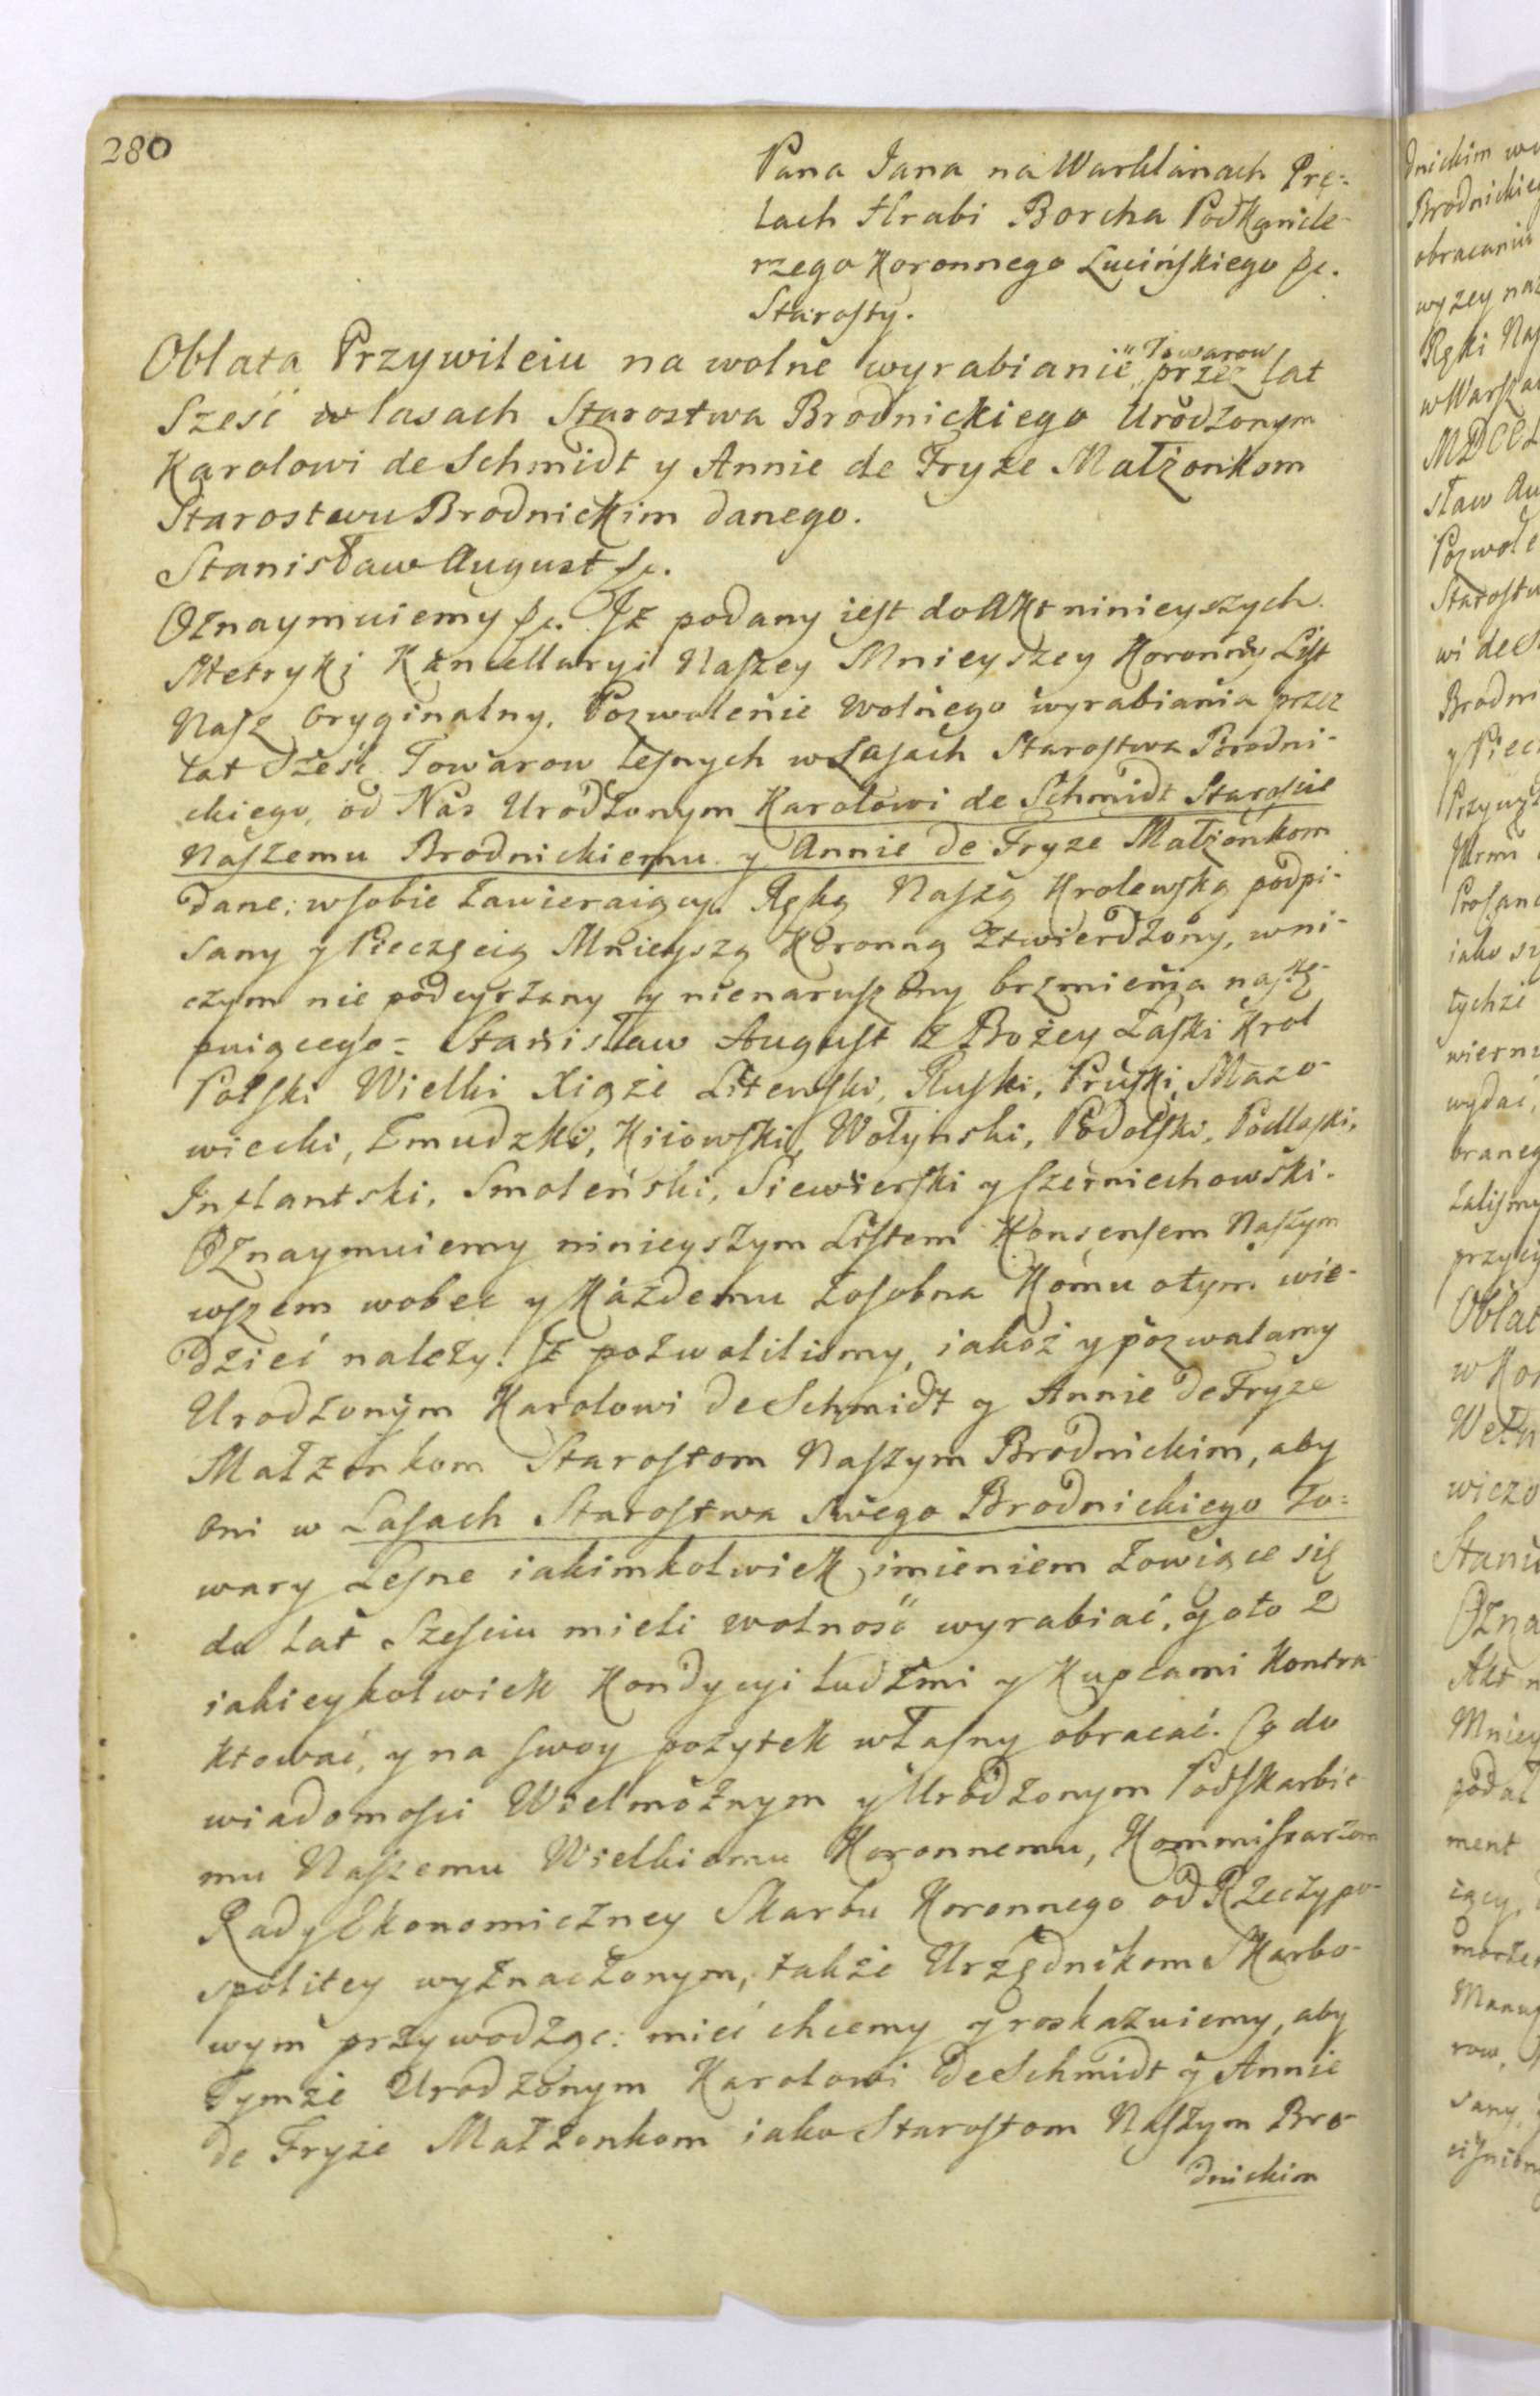 280
Pana Jana na Warklanach Pre:
lach Hrabi Borcha Podkancle-
rzego Koronnego Lucińskiego &c.
Starosty.
Oblata Przywileiu na wolne wyrabianie Towarow przez lat
Sześć w lasach Starostwa Brodnickiego Urodzonym
Karolowi de Schmidt y Annie de Fryze Małżonkom
Starostwu Brodnickim danego.
Stanisław August &c.
Oznaymuiemy &c. Iż podany iest do Akt ninieyszych
Metryki Kancellaryi Naszey Mnieyszey Koronney List
Nasz Oryginalny, Pozwolenie wolnego wyrabiania przez
lat Sześć Towarow leśnych w Lasach Starostwa Brodni-
ckiego, od Nas Urodzonym Karolowi de Schmidt Staroście
Naszemu Brodnickiemu y Annie de Fryze Małżonkom
dane; w sobie zawieraiący. Ręką Naszą Krolewską podpi-
sany y Pieczęcią Mnieyszą Koronną ztwierdzony, w ni-
czym nie podeyrzany y nienaruszony brzmienia nastę-
puiącego = Stanisław August z Bożey Łaski Krol
Polski Wielki Xiąże Litewski, Ruski, Pruski, Mazo-
wiecki, Zmudzki, Kiiowski, Wołyński, Podolski, Podlaski,
Inflantski, Smoleński, Siewierski y Czerniechowski.
Oznaymuiemy ninieyszym Listem Konsensem Naszym
wszem wobec y Każdemu zosobna Komu otym wie-
dzieć należy. Iż pozwoliliśmy, iakoż y pozwalamy
Urodzonym Karolowi de Schmidt y Annie de Fryze
Małżonkom Starostom Naszym Brodnickim, aby
oni w Lasach Starostwa Swego Brodnickiego To=
wary Leśne iakimkolwiek imieniem zowiące się
do lat Sześciu mieli wolność wyrabiać, y oto z
iakieykolwiek Kondycyi ludźmi y Kupcami Kontra-
ktować, y na swoy pożytek własny obracać. Co do
wiadomości Wielmożnym y Urodzonym Podskarbie-
mu Naszemu Wielkiemu Koronnemu, Kommissarzom
Rady Ekonomiczney Skarbu Koronnego od Rzeczypo-
spolitey wyznaczonym, także Urzędnikom Skarbo-
wym przywodząc: mieć chcemy y roskazuiemy, aby
Tymże Urodzonym Karolowi de Schmidt y Annie
de Fryze Małżonkom iako Starostom Naszym Bro-
dnickim